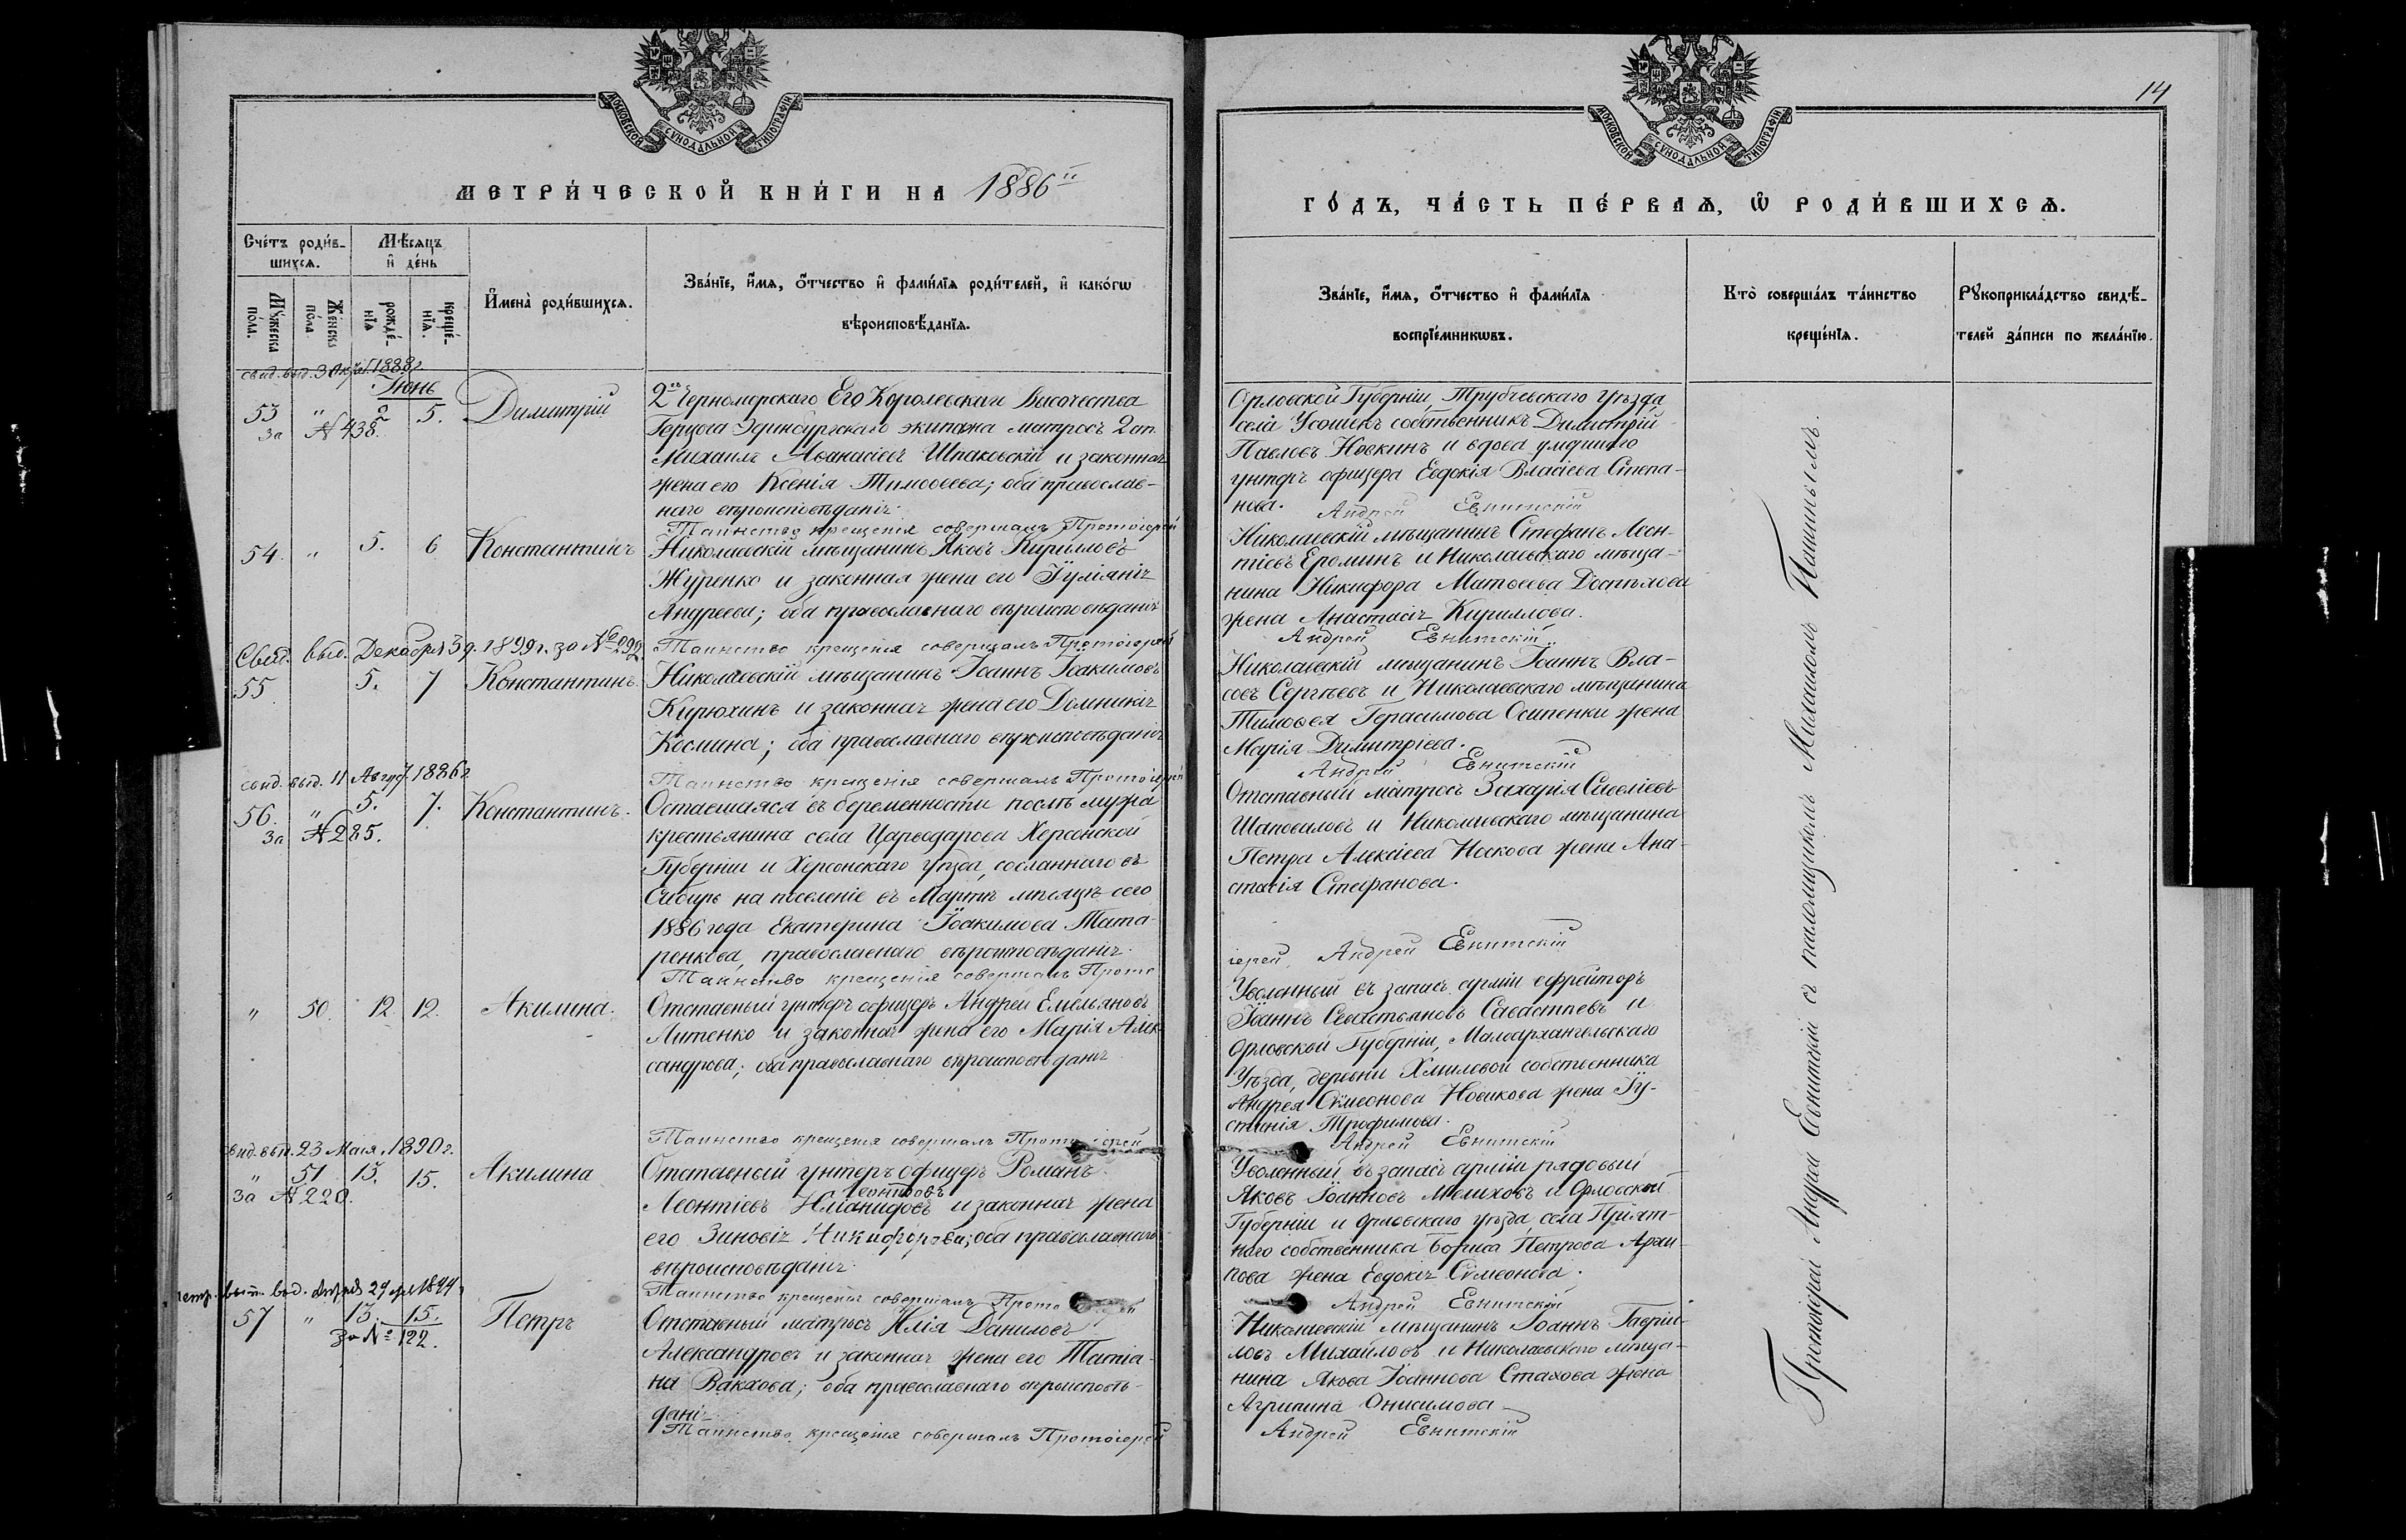 МОСКОВСКОЙ СѴНОДАЛЬНОЙ ТИПОГРАФІИ
МЕТРИ́ЧЕСКОЙ КНИ́ГИ НА 1886й
Сче́тъ роди́в-
шихсѧ.
Мѣ́сѧцъ
и҆ де́нь
И҆мена̀ роди́вшихсѧ.
Зва́нїе, и҆́мѧ, ѻ҆́тчество и҆ фами́лїѧ роди́телей, и҆ како́гѡ
вѣроисповѣ́данїѧ.
Мꙋ́жеска
по́ла.
Же́нска
по́ла
рожде́-
нїѧ
креще́-
нїѧ.
свид. выд. 3 Окт. 1888 г.
Іюнь
53 " 2 5. Димитрій
За № 438.
2го Черноморскаго Его Королевскаго Высочества
Герцога Эдинбургскаго экипажа матросъ 2 ст.
Михаилъ Аѳанасіевъ Шпаковскій и законная
жена его Ксенія Тимоѳеева; оба православ-
наго вѣроисповѣданія.
Таинство крещенія совершалъ Протоіерей
54. " 5. 6 Константинъ
Николаевскій мѣщанинъ Яковъ Кирилловъ
Журенко и законная жена его Іуліанія
Андреева; оба православнаго вѣроисповѣданія
Свид. выд. Декабря 3 д. 1899 г. за № 292
Таинство крещенія совершалъ Протоіерей
55 5. 7 Константинъ
Николаевскій мѣщанинъ Іоаннъ Іоакимовъ
Кирюхинъ и законная жена его Домникія
Космина; оба православнаго вѣроисповѣданія
свид. выд. 11 Август. 1886 г
Таинство крещенія совершалъ Протоіерей
56. " 5. 7. Константинъ.
За № 285.
Оставшаяся въ беременности послѣ мужа
крестьянина села Царедарова Херсонской
Губерніи и Херсонскаго уѣзда, сосланнаго въ
Сибирь на поселеніе въ Мартѣ мѣсяцѣ сего
1886 года Екатерина Іоакимова Тата-
ренкова, православнаго вѣроисповѣданія.
Таинство крещенія совершалъ Прото
" 50. 12. 12. Акилина.
Отставный унтеръ офицеръ Андрей Емельяновъ
Литенко и законная жена его Марія Алек-
сандрова; оба православнаго вѣроисповѣданія
Таинство крещенія совершалъ Протоіерей
свид. выд. 23 Мая. 1890 г.
" 51 13. 15. Акилина
За № 220.
Отставный унтеръ офицеръ Романъ
Леонтіевъ и законная жена
его Зиновія Никифорова; оба православнаго
вѣроисповѣданія.
Таинство крещенія совершалъ Прото
57 " 13. 15. Петръ
За № 122.
Отставный матросъ Илія Даниловъ
Александровъ и законная жена его Татіа-
на Вакхова; оба православнаго вѣроисповѣ-
данія
Таинство крещенія совершалъ Протоіерей
14
МОСКОВСКОЙ СѴНОДАЛЬНОЙ ТИПОГРАФІИ
ГО́ДЪ, ЧА́СТЬ ПЕ́РВАѦ, Ѡ҆ РОДИ́ВШИХСѦ.
Зва́нїе, и҆́мѧ, ѻ҆́тчество и҆ фами́лїѧ
воспрїе́мникѡвъ.
Кто̀ соверша́лъ та́инство
креще́нїѧ.
Рꙋкоприкла́дство свидѣ́-
телей за́писи по жела́нїю.
Орловской Губерніи, Трубчевскаго Уѣзда,
села Усошекъ собственникъ Димитрій
Павловъ Новкинъ и вдова умершаго
унтеръ офицера Евдокія Власіева Степа-
нова.
Андрей Евнитскій
Николаевскій мѣщанинъ Стефанъ Леон-
тіевъ Ероминъ и Николаевскаго мѣща-
нина Никифора Матвеева Доспѣлова
жена Анастасія Кириллова.
Андрей Евнитскій
Николаевскій мѣщанинъ Іоаннъ Вла-
совъ Сергѣевъ и Николаевскаго мѣщанина
Тимоѳея Герасимова Осипенки жена
Марія Димитріева.
Андрей Евнитскій
Отставный матросъ Захарія Савеліевъ
Шаповаловъ и Николаевскаго мѣщанина
Петра Алексіева Носкова жена Ана-
стасія Стефанова.
іерей, Андрей Евнитскій
Уволенный въ запасъ арміи ефрейторъ
Іоаннъ Севастьяновъ Савастѣевъ и
Орловской Губерніи, Малоархангельскаго
Уѣзда, деревни Хмилевой собственника
Андрея Сѵмеонова Новикова жена Іу-
стинія Трофимова.
Андрей Евнитскій
Уволенный въ запасъ арміи рядовый
Яковъ Іоанновъ Мелиховъ и Орловской
Губерніи и Орловскаго уѣзда, села Пріят-
наго собственника Бориса Петрова Архи-
пова жена Евдокія Сѵмеонова.
Андрей Евнитскій
Николаевскій мѣщанинъ Іоаннъ Гаврии-
ловъ Михайловъ и Николаевскаго мѣща-
нина Якова Іоаннова Стахова жена
Агрипина Онисимова
Андрей Евнитскій
Протоіерей Андрей Евнитскій съ псаломщикомъ Михаиломъ